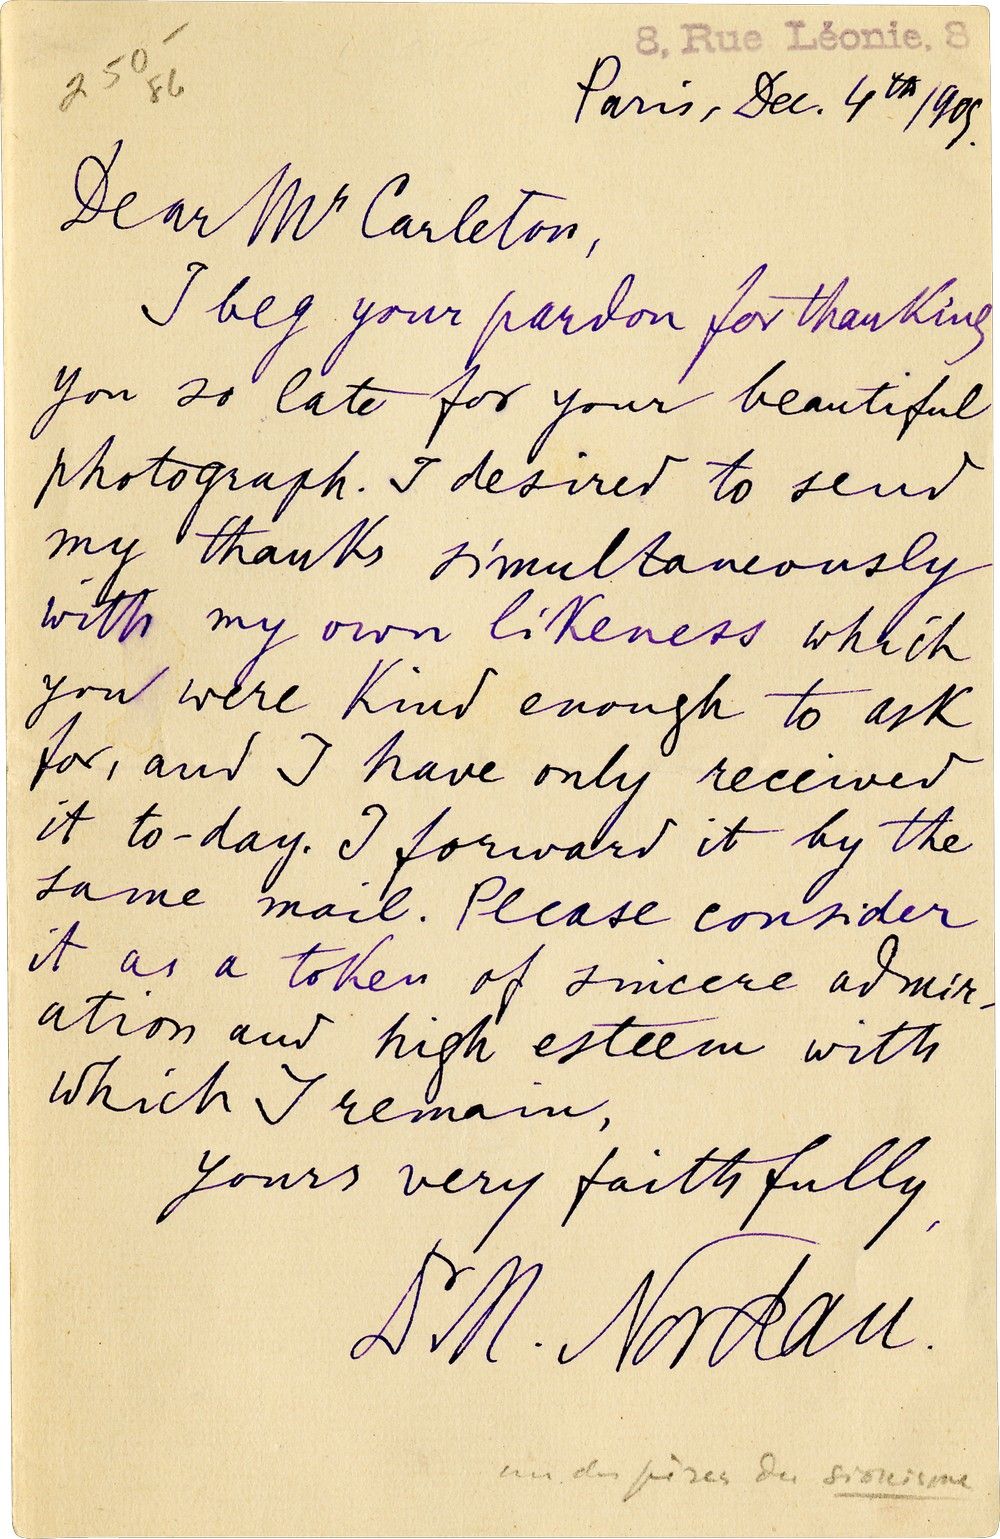 8, Rue Léonie, 8
250-
86
Paris, Dec. 4th 1905.
Dear Mr Carleton,
I beg your pardon for thanking
you so late for your beautiful
photograph. I desired to send
my thanks simultaneously
with my own likeness which
you were kind enough to ask
for, and I have only received
it to-day. I forward it by the
same mail. Please consider
it as a token of sincere admir-
ation and high esteem with
which I remain,
yours very faithfully,
Dr M. Nordau.
un des pères du sionisme